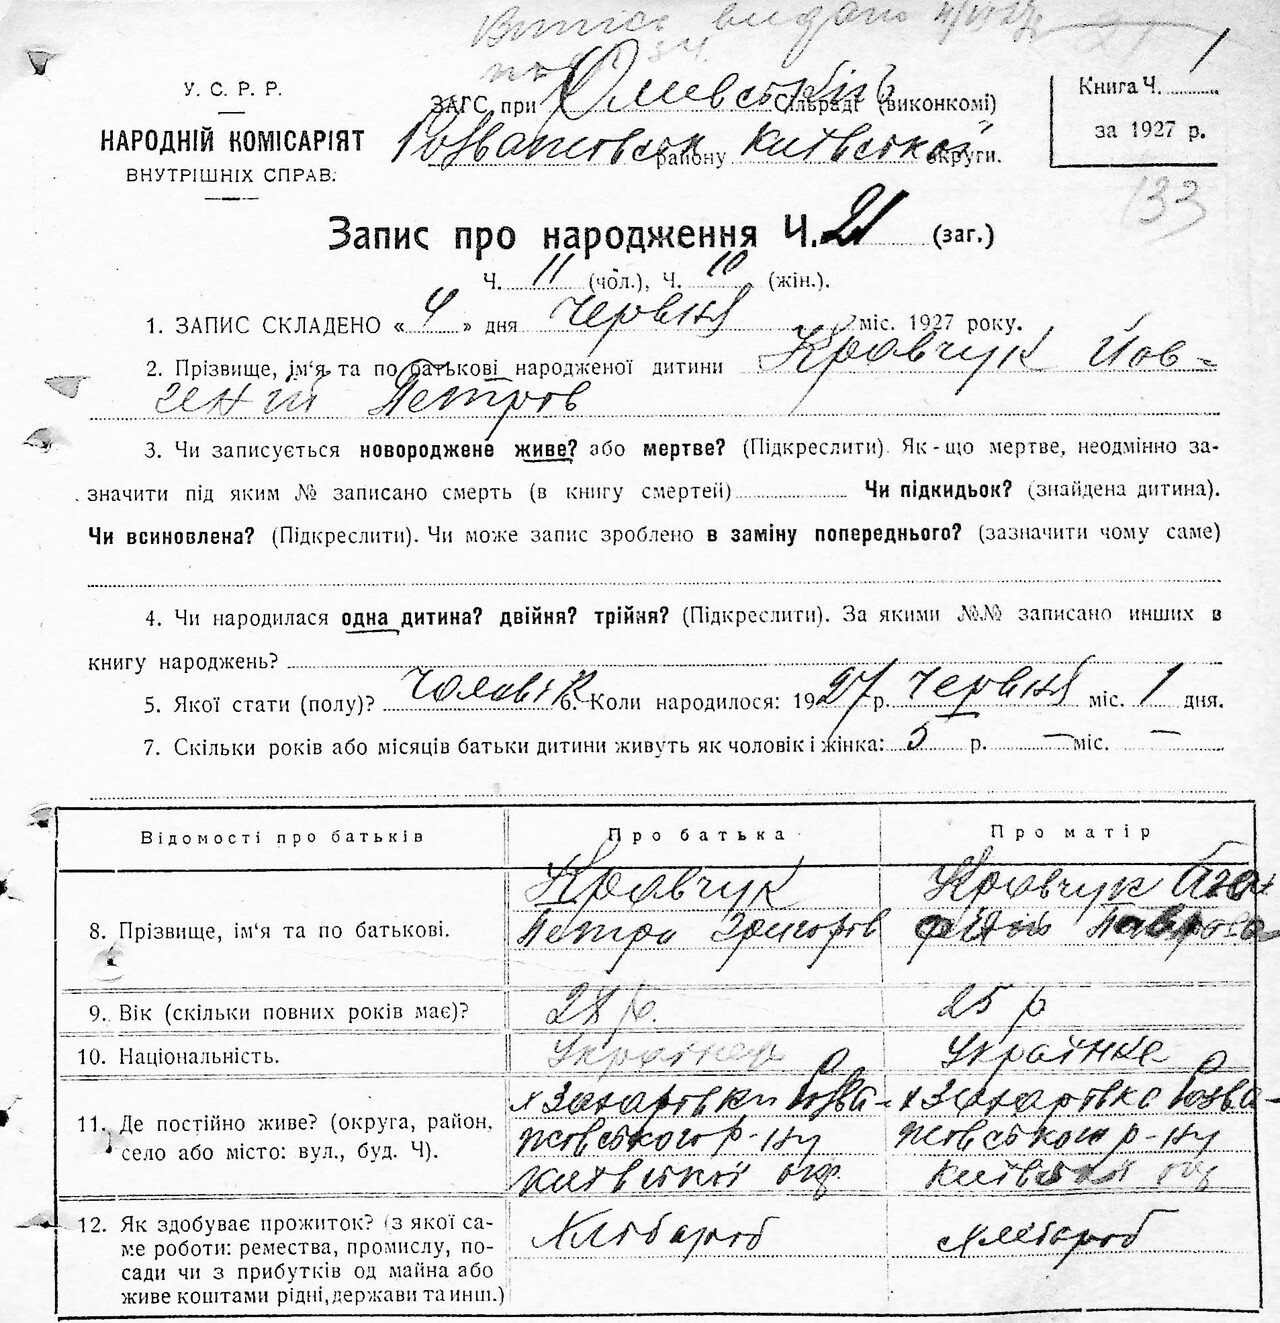 Випись видано 4/VI 27р
У. С. Р. Р.
НАРОДНІЙ КОМІСАРІЯТ
ВНУТРІШНІХ СПРАВ.
ЗАГС при Сільраді (виконкомі)
Розважовськ району Київської округи.
Книга Ч. 1
за 1927 р.
133
Запис про народження Ч. 21 (заг.)
Ч. 11 (чол.), Ч. 10 (жін.).
1. ЗАПИС СКЛАДЕНО « 4 » дня Червня міс. 1927 року.
2. Прізвище, ім'я та по батькові народженої дитини Кравчук Йов-
гений Петров
3. Чи записується новороджене живе? або мертве? (Підкреслити). Як-що мертве, неодмінно за-
значити під яким № записано смерть (в книгу смертей) Чи підкидьок? (знайдена дитина).
Чи всиновлена? (Підкреслити). Чи може запис зроблено в заміну попереднього? (зазначити чому саме)
4. Чи народилася одна дитина? двійня? трійня? (Підкреслити). За якими №№ записано инших в
книгу народжень?
5. Якої стати (полу)? Чоловік 6. Коли народилося: 1927 р. Червня міс. 1 дня.
7. Скільки років або місяців батьки дитини живуть як чоловік і жінка: 5 р. — міс. —
Відомості про батьків Про батька Про матір
8. Прізвище, ім'я та по батькові. Кравчук Кравчук
Петро Григоров
9. Вік (скільки повних років має)? 28 р. 25 р
10. Національність. Українец Українка
11. Де постійно живе? (округа, район, село або місто: вул., буд. Ч). х Захаровки Розва- х Захаровка Розва-
жовського р-ну жовського р-ну
київської окр. київської окр
12. Як здобуває прожиток? (з якої са- Хлібароб Хлібароб
ме роботи: ремества, промислу, по-
сади чи з прибутків од майна або
живе коштами рідні, держави та инш.)